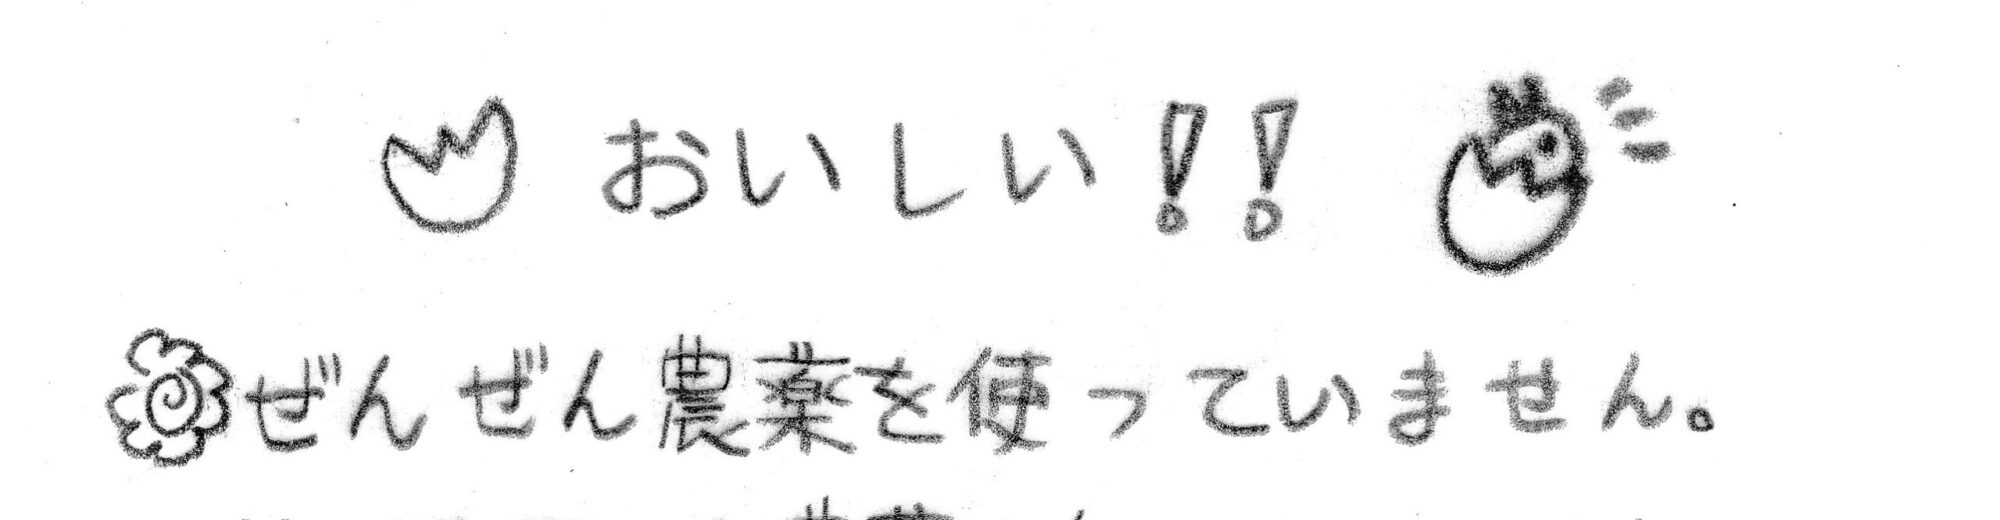 おいしい!!
ぜんぜん農薬を使っていません。